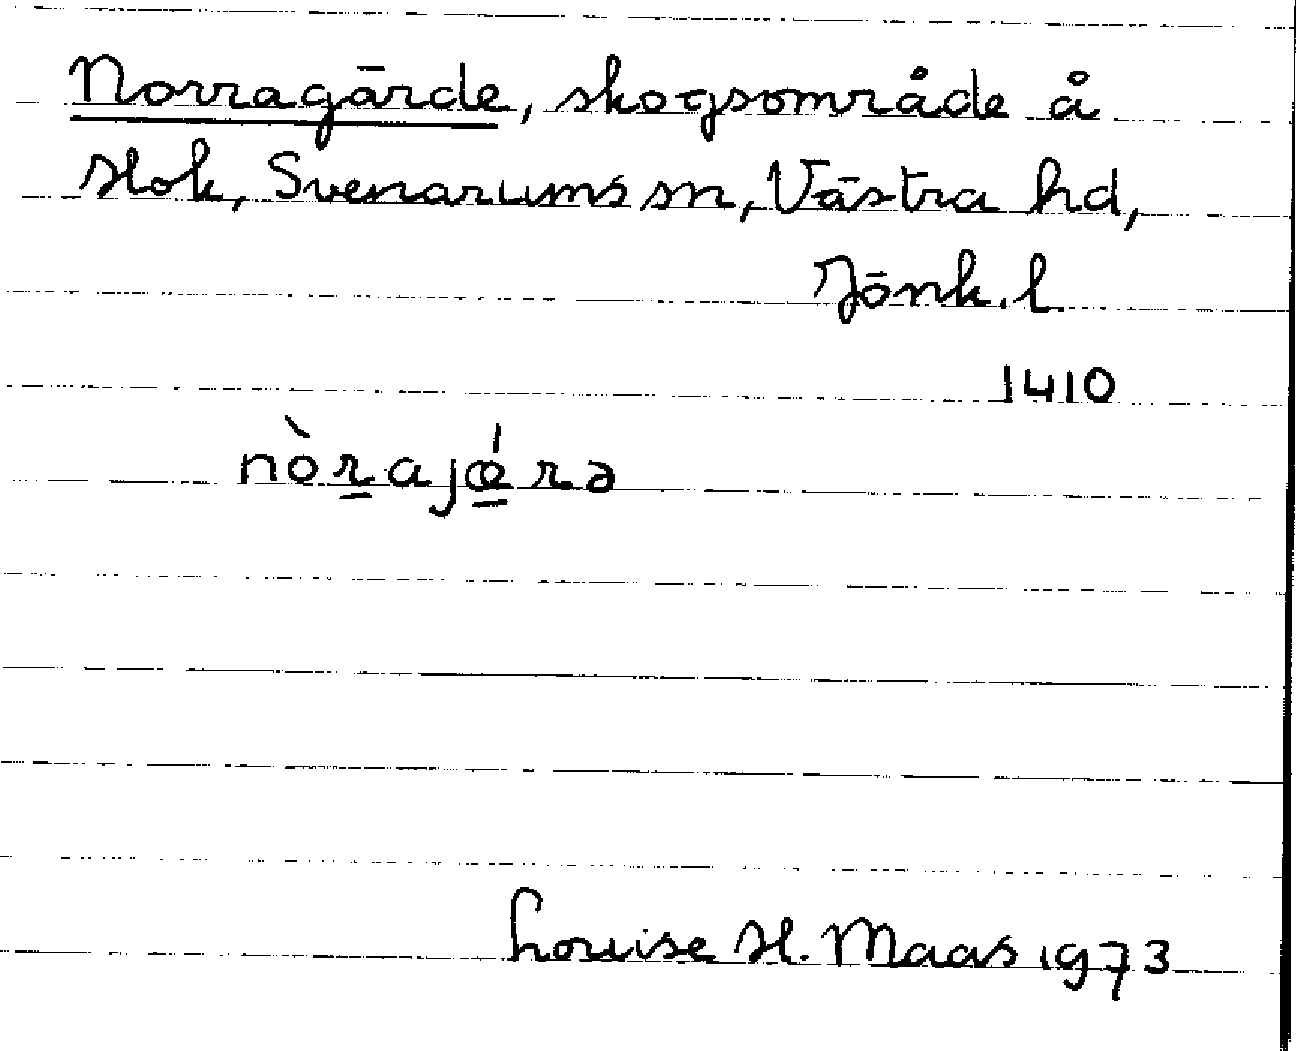 Norragärde, skogsområde å
Hok, Svenarums sn, Västra hd,
Jönk. l
1410
nòr̲ajœ̲́rə
Louise H. Maas 1973